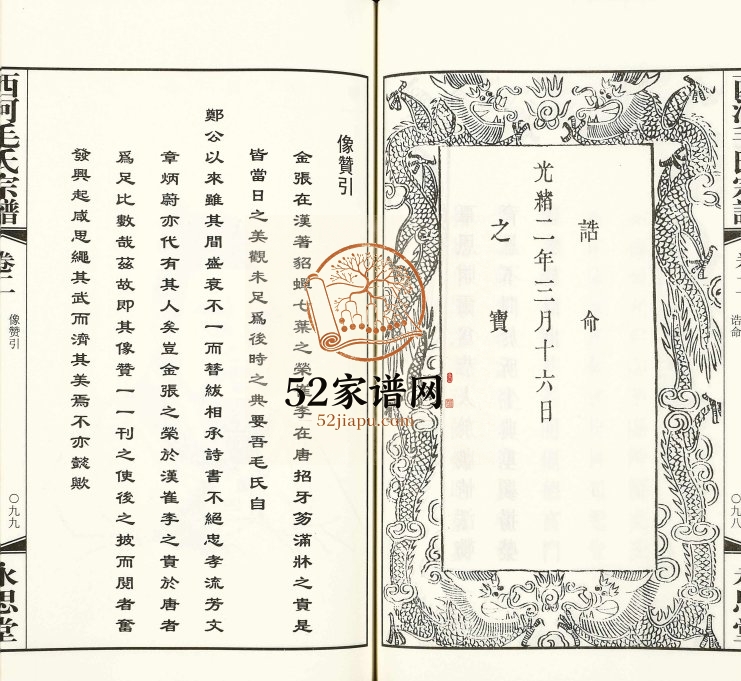 誥命
之寶
光緒二年三月十六日
誥命
〇九八
像贊引
金張在漢著貂蟬七葉之榮崔李在唐招牙笏滿牀之貴是
皆當日之美觀未足爲後時之典要吾毛氏自
鄭公以來雖其間盛衰不一而簪紱相承詩書不絕忠孝流芳文
章炳蔚亦代有其人矣豈金張之榮於漢崔李之貴於唐者
爲足比數哉茲故即其像贊一一刊之使後之披而閱者奮
發興起咸思繩其武而濟其美焉不亦懿歟
西河毛氏宗譜
卷二
像贊引
〇九九
永思堂
52家谱网
52jiapu.com